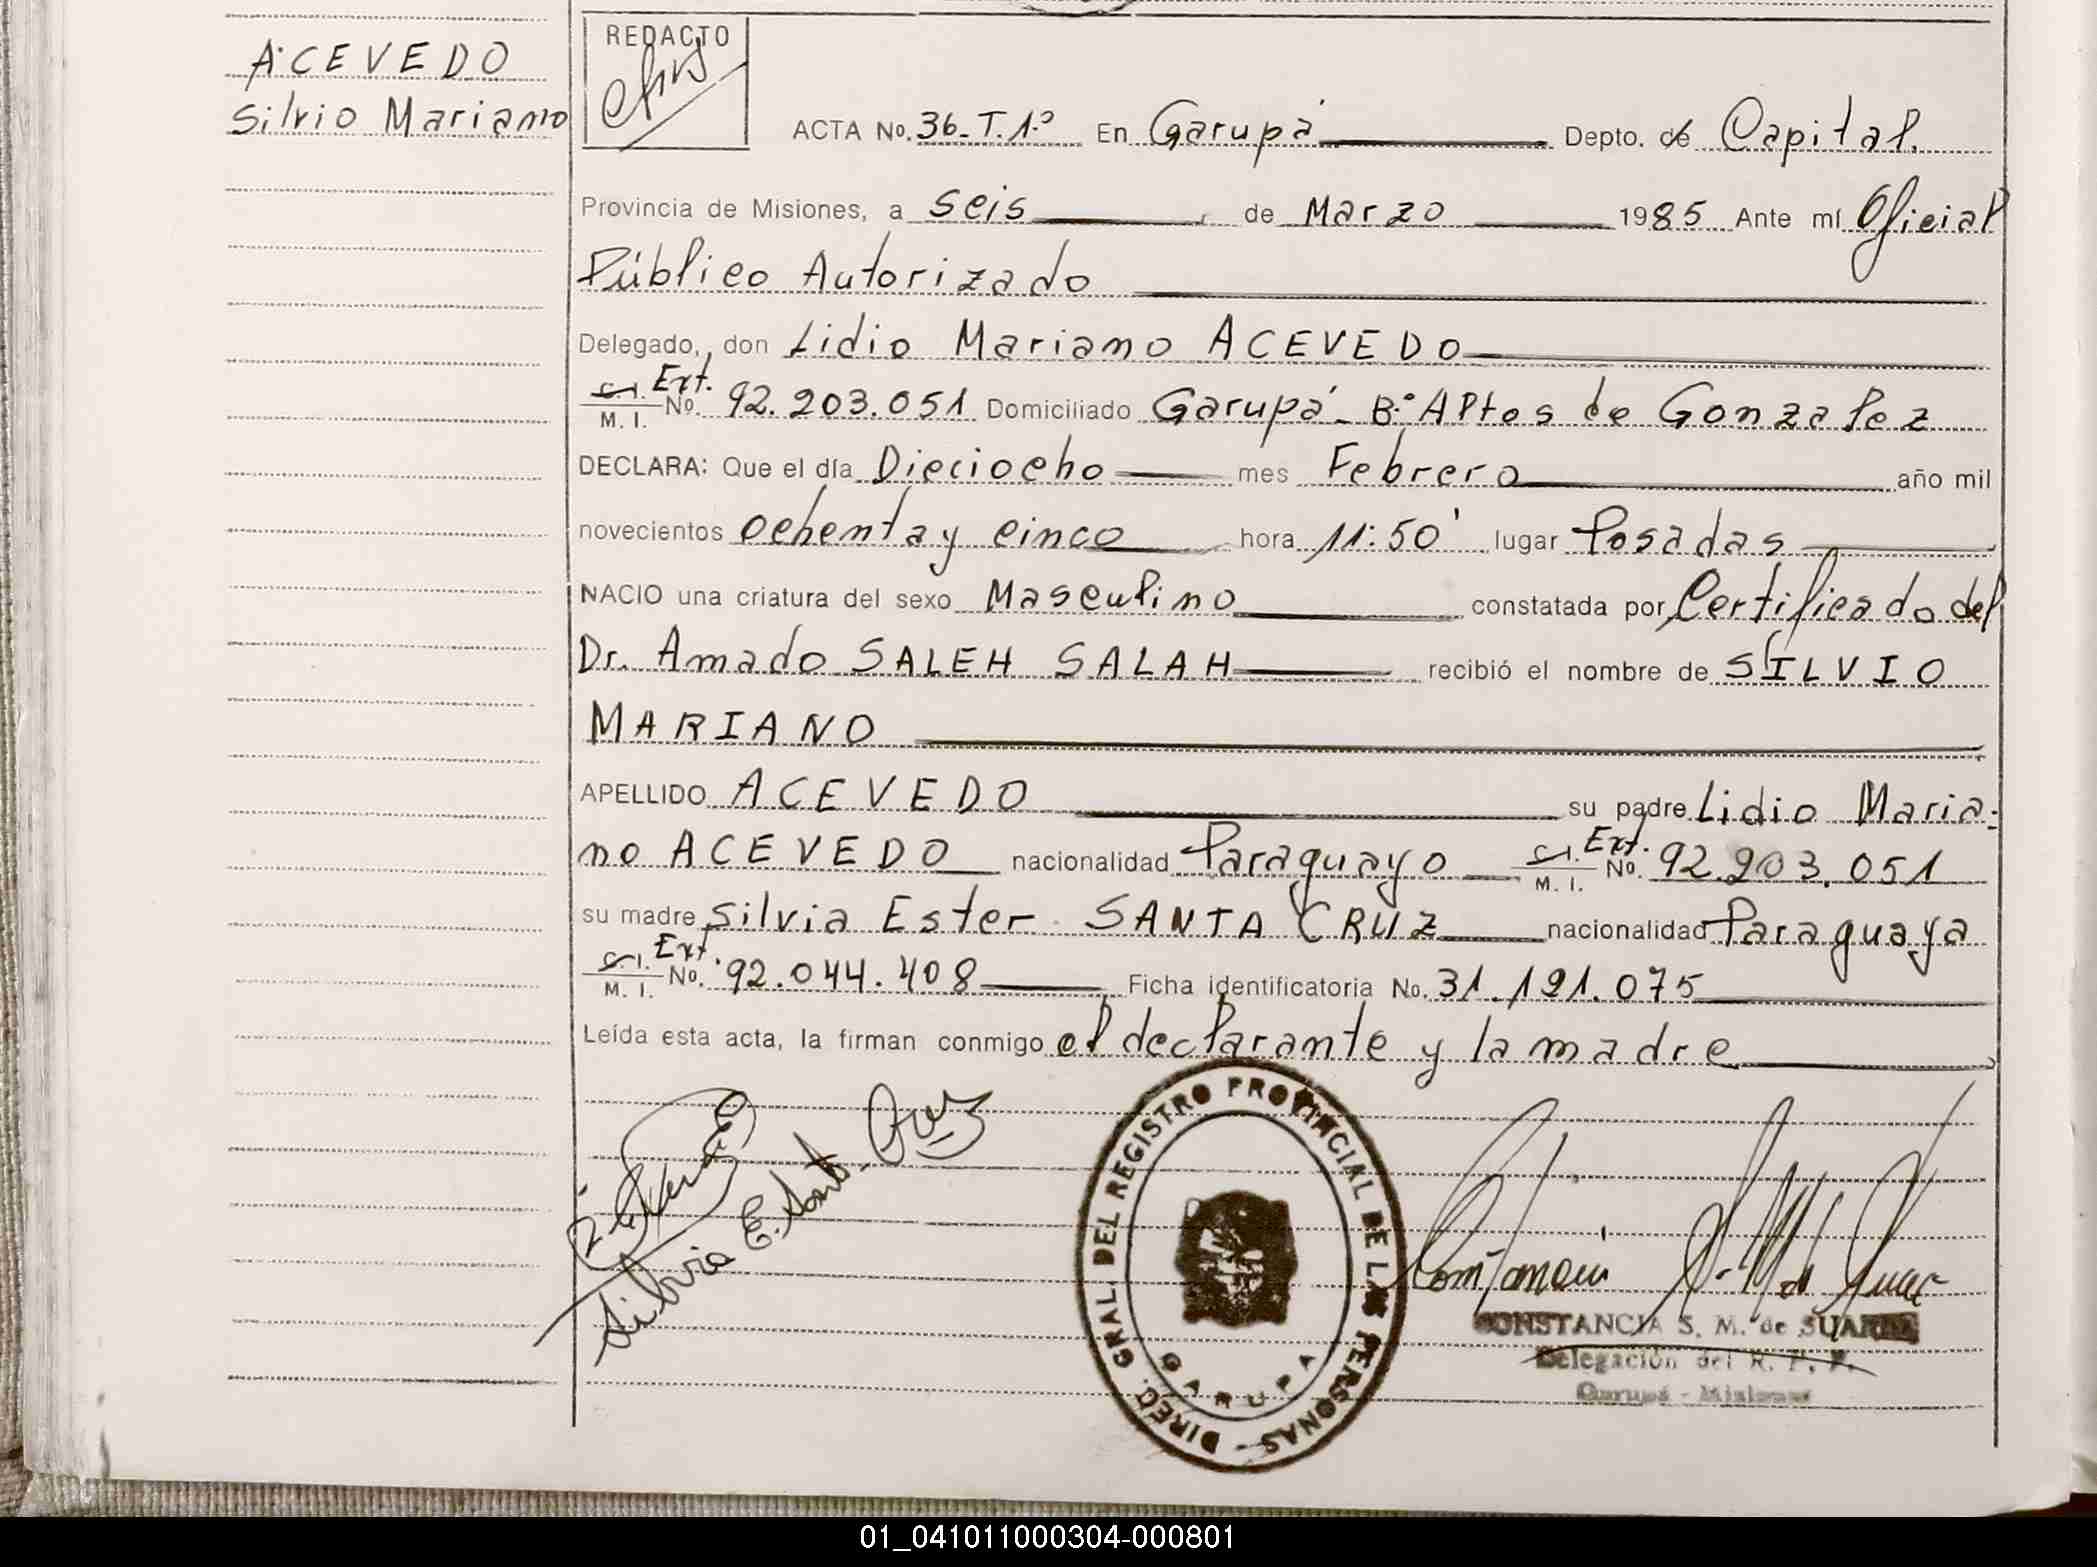 ACEVEDO
Silvio Mariano
REDACTO
ACTA No. 36-T.1º En Garupá Depto. de Capital.
Provincia de Misiones, a seis de Marzo 1985 Ante mí Oficial
Público Autorizado
Delegado, don Lidio Mariano ACEVEDO
C.I. Ext.
M. I. No. 92.203.051 Domiciliado Garupá - Bº Altos de Gonzalez
DECLARA: Que el día Dieciocho mes Febrero año mil
novecientos ochenta y cinco hora 11:50' lugar Posadas
NACIO una criatura del sexo Masculino constatada por Certificado del
Dr. Amado SALEH SALAH recibió el nombre de SILVIO
MARIANO
APELLIDO ACEVEDO su padre Lidio Maria-
no ACEVEDO nacionalidad Paraguayo C.I. Ext. M. I. No. 92.203.051
su madre Silvia Ester SANTA CRUZ nacionalidad Paraguaya
C.I. Ext.
M. I. No. 92.044.408 Ficha identificatoria No. 31.191.075
Leída esta acta, la firman conmigo el declarante y la madre
Silvia E. Santa Cruz
DIREC. GRAL. DEL REGISTRO PROVINCIAL DE LAS PERSONAS -
GARUPA
CONSTANCIA S. M. de SUAREZ
Delegación del R. P. P.
Garupá - Misiones
01_041011000304-000801